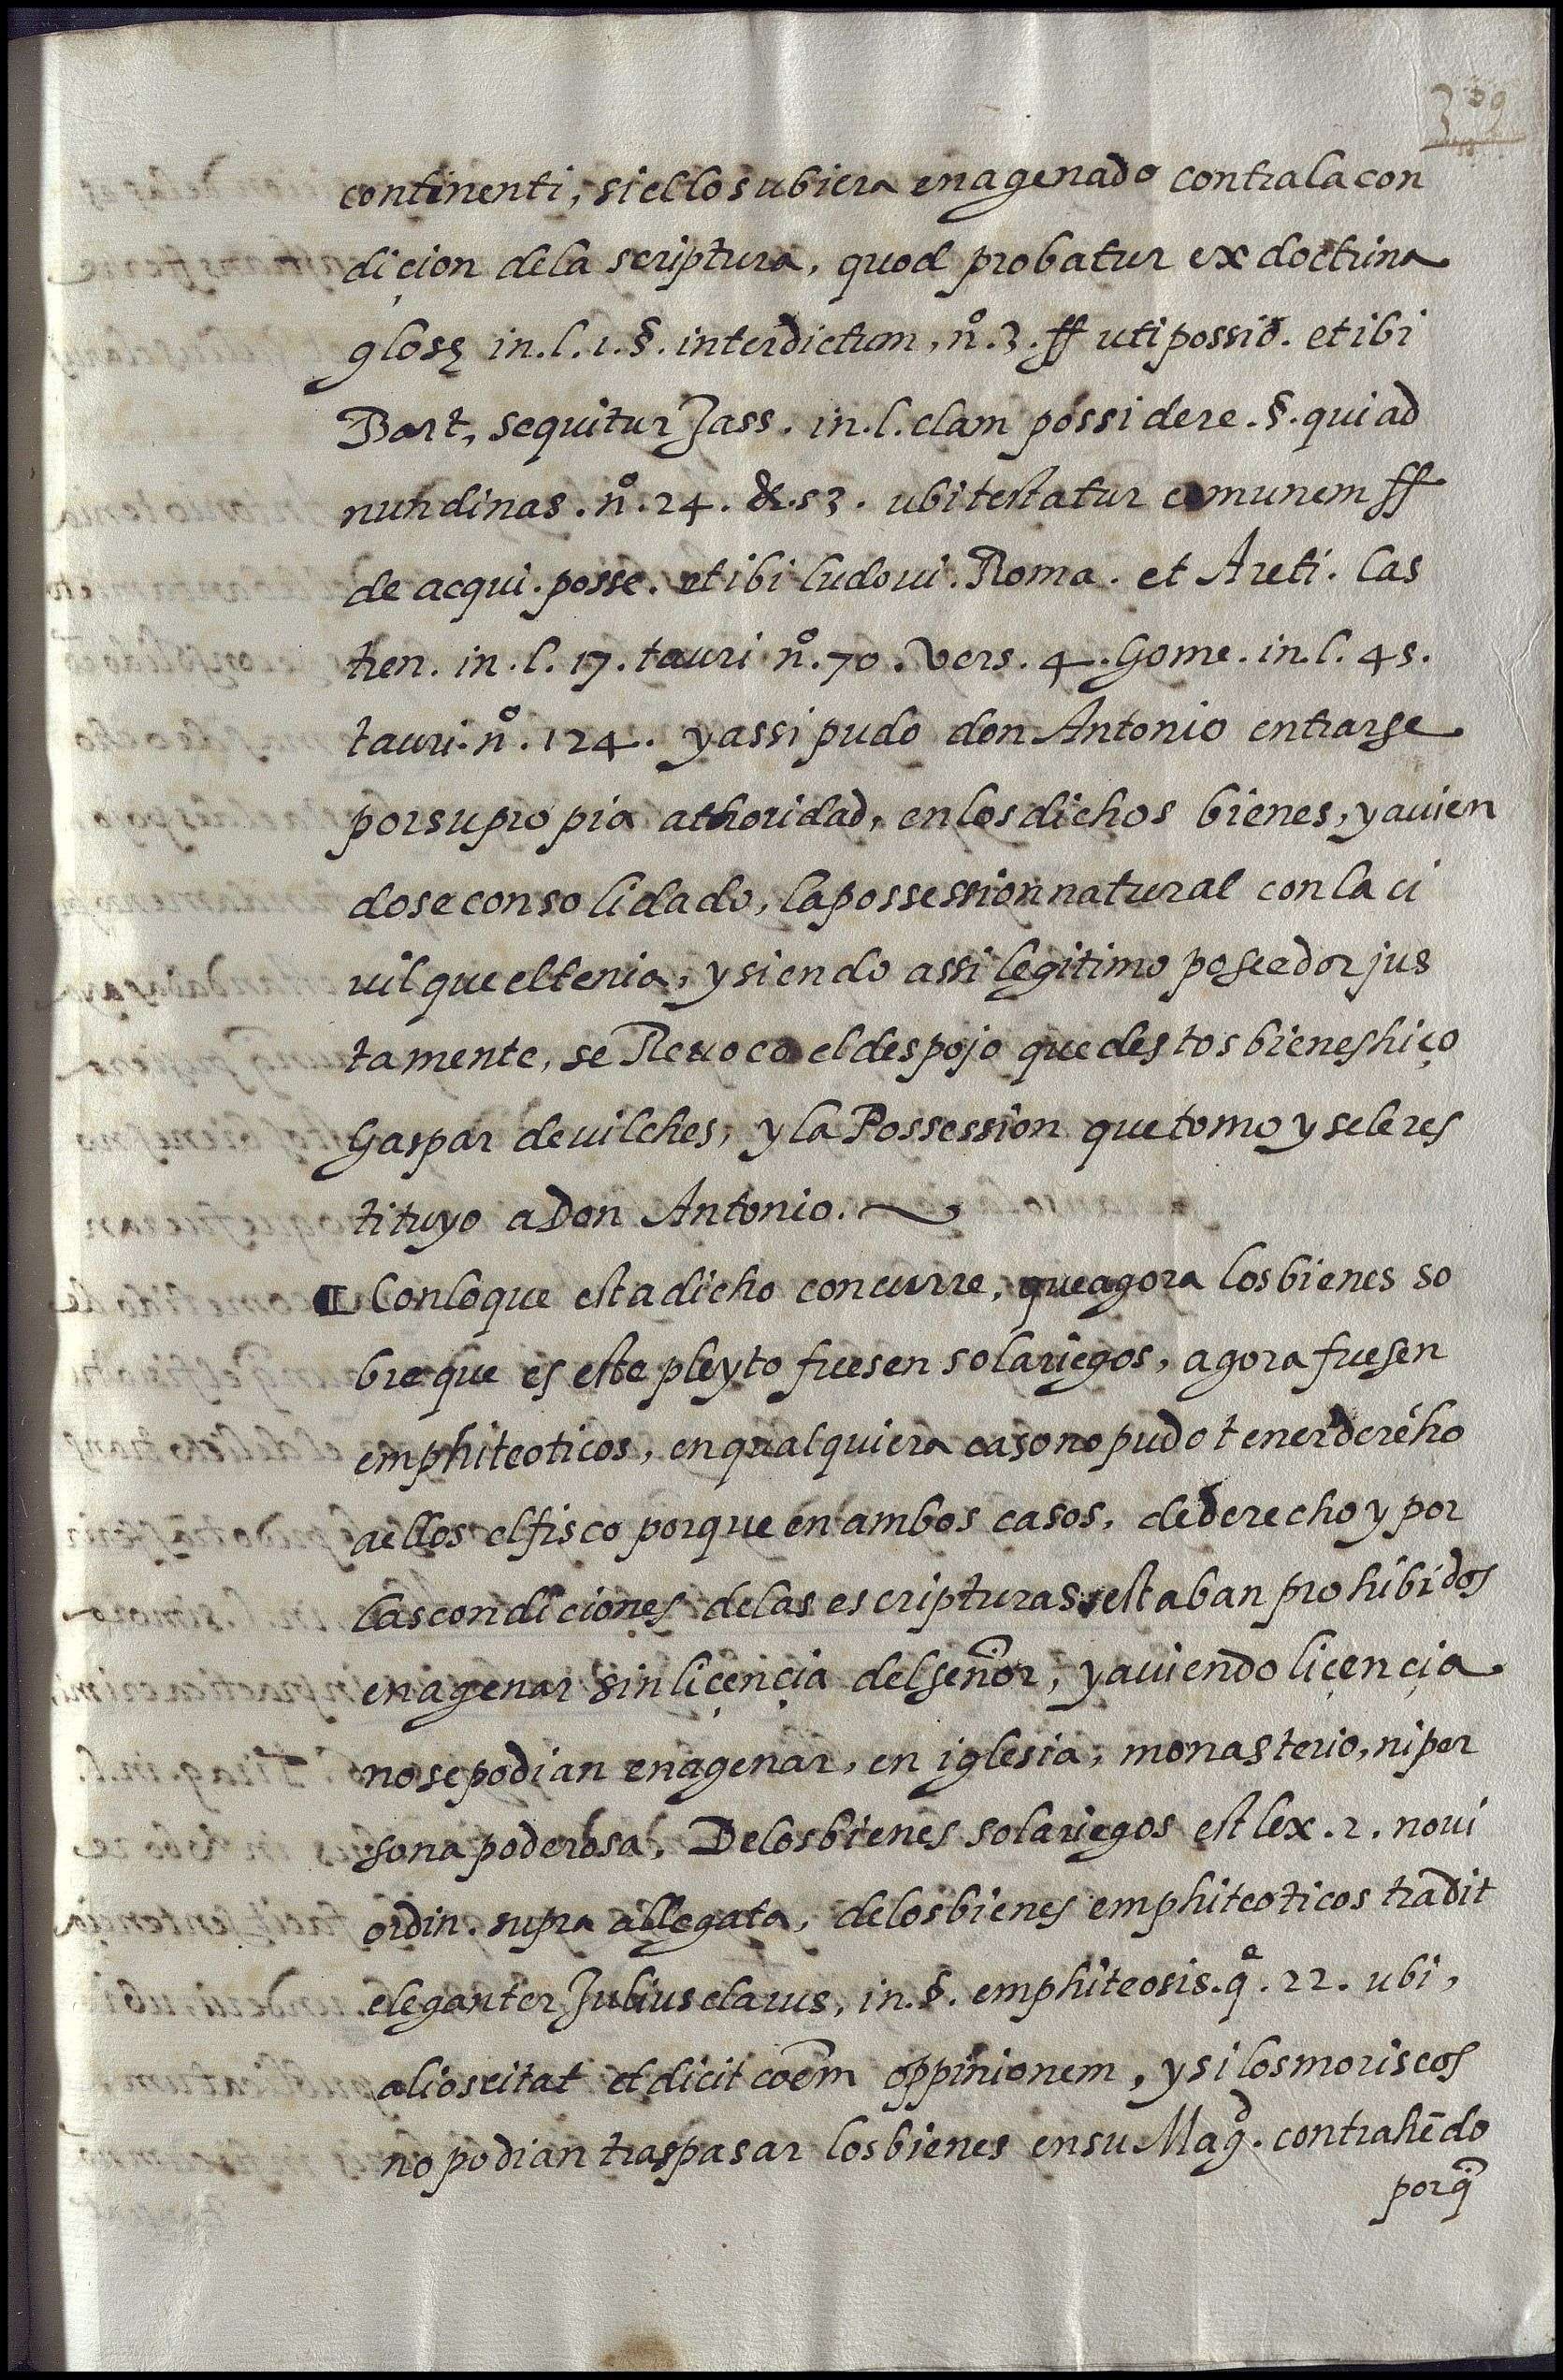 309
continenti, si ellos ubiera enagenado contra la con
dicion de la scriptura, quod probatur ex doctrina
glosę in. l. 1. §. interdictum, nº. 3. ff uti possid. et ibi
Bart, sequitur Jass. in. l. clam possidere. §. qui ad
nundinas. nº. 24. &. 53. ubi testatur comunem ff
de acqui. posse. et ibi ludoui. Roma. et Areti. Cas
tien. in. l. 17. tauri nº. 70. vers. 4. Gome. in. l. 45.
tauri. nº. 124. y assi pudo don Antonio entrarse
por su propia athoridad, en los dichos bienes, y auien
dose consolidado, la possession natural con la ci
uil que el tenia, y siendo assi legitimo poseedor jus
tamente, se Reuoco el despojo que destos bienes hiço
Gaspar de uilches, y la Possession que tomo y se le res
tituyo a Don Antonio.
Con lo que esta dicho concurre, que agora los bienes so
bre que es este pleyto fuesen solariegos, agora fuesen
emphiteoticos, en qualquiera caso no pudo tener derecho
a ellos el fisco porque en ambos casos, de derecho y por
las condiciones de las escripturas estaban prohibidos
enagenar sin liçençia del señor, y auiendo liçençia
no se podian enagenar, en iglesia, monasterio, ni per
sona poderosa, De los bienes solariegos est lex. 2. noui
ordin. supra allegata, de los bienes emphiteoticos tradit
eleganter Julius clarus, in. §. emphiteosis. qe. 22. ubi,
alios citat et dicit coem oppinionem, y si los moriscos
no podian traspasar los bienes en su Magd. contrahēdo
porq̃